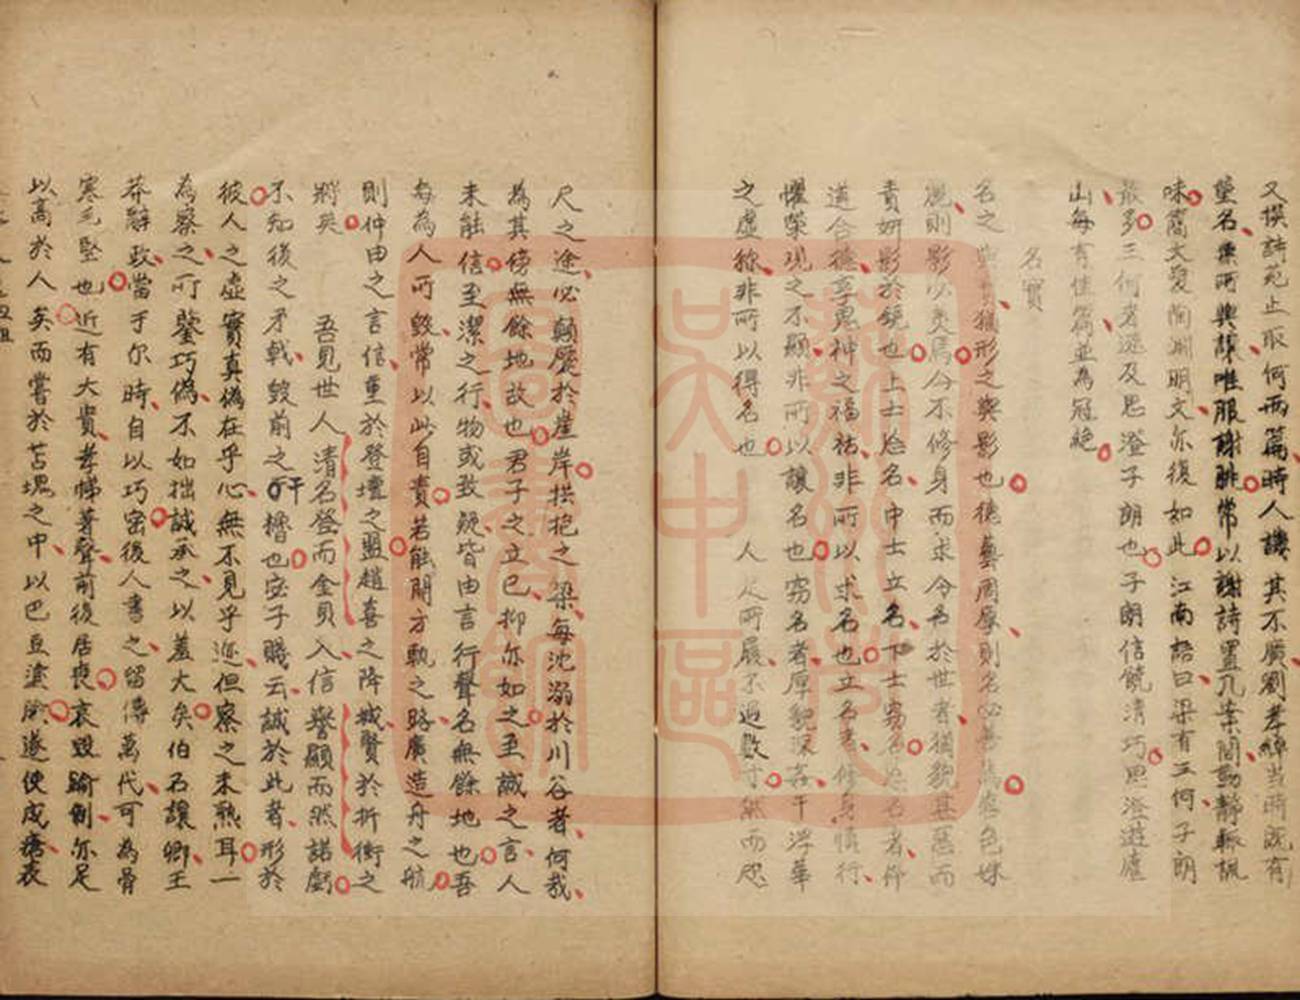 又撰詩苑止取何兩篇時人譏其不廣劉孝綽當時既有
重名無所與讓唯服謝朓常以謝詩置几案間動靜輒諷
味簡文愛陶淵明文亦復如此 江南語曰梁有三何子朗
最多三何者遜及思澄子朗也子朗信饒清巧思澄遊廬
山每有佳篇並為冠絶
名實
名之與實猶形之與影也德藝周厚則名必善焉容色姝
麗則影必美焉今不修身而求令名於世者猶貌甚惡而
責妍影於鏡也上士忘名中士立名下士竊名忘名者
道合德享鬼神之福祐非所以求名也立名者修身慎行
懼榮現之不顯非所以讓名也竊名者厚貌深姦干浮華
之虛稱非所以得名也 人足所履不過數寸然而咫
尺之途必顛蹶於崖岸拱抱之梁每沈溺於川谷者何哉
為其傍無餘地故也君子之立己抑亦如之至誠之言人
未能信至潔之行物或致疑皆由言行聲名無餘地也吾
每為人所毀常以此自責若能開方軌之路廣造舟之航
則仲由之言信重於登壇之盟趙熹之降城賢於折衝之
將矣 吾見世人清名登而金貝入信譽顯而然諾虧
不知後之矛戟毀前之干櫓也宓子賤云誠於此者形於
彼人之虛實真偽在乎心無不見乎迹但察之未熟耳一
為察之所鑒巧偽不如拙誠承之以羞大矣伯石讓卿王
莽辭政當于尔時自以巧密後人書之留傳萬代可為骨
寒毛堅也近有大貴孝悌著聲前後居喪哀毀踰制亦足
以高於人矣而嘗於苫塊之中以巴豆塗臉遂使成瘡表